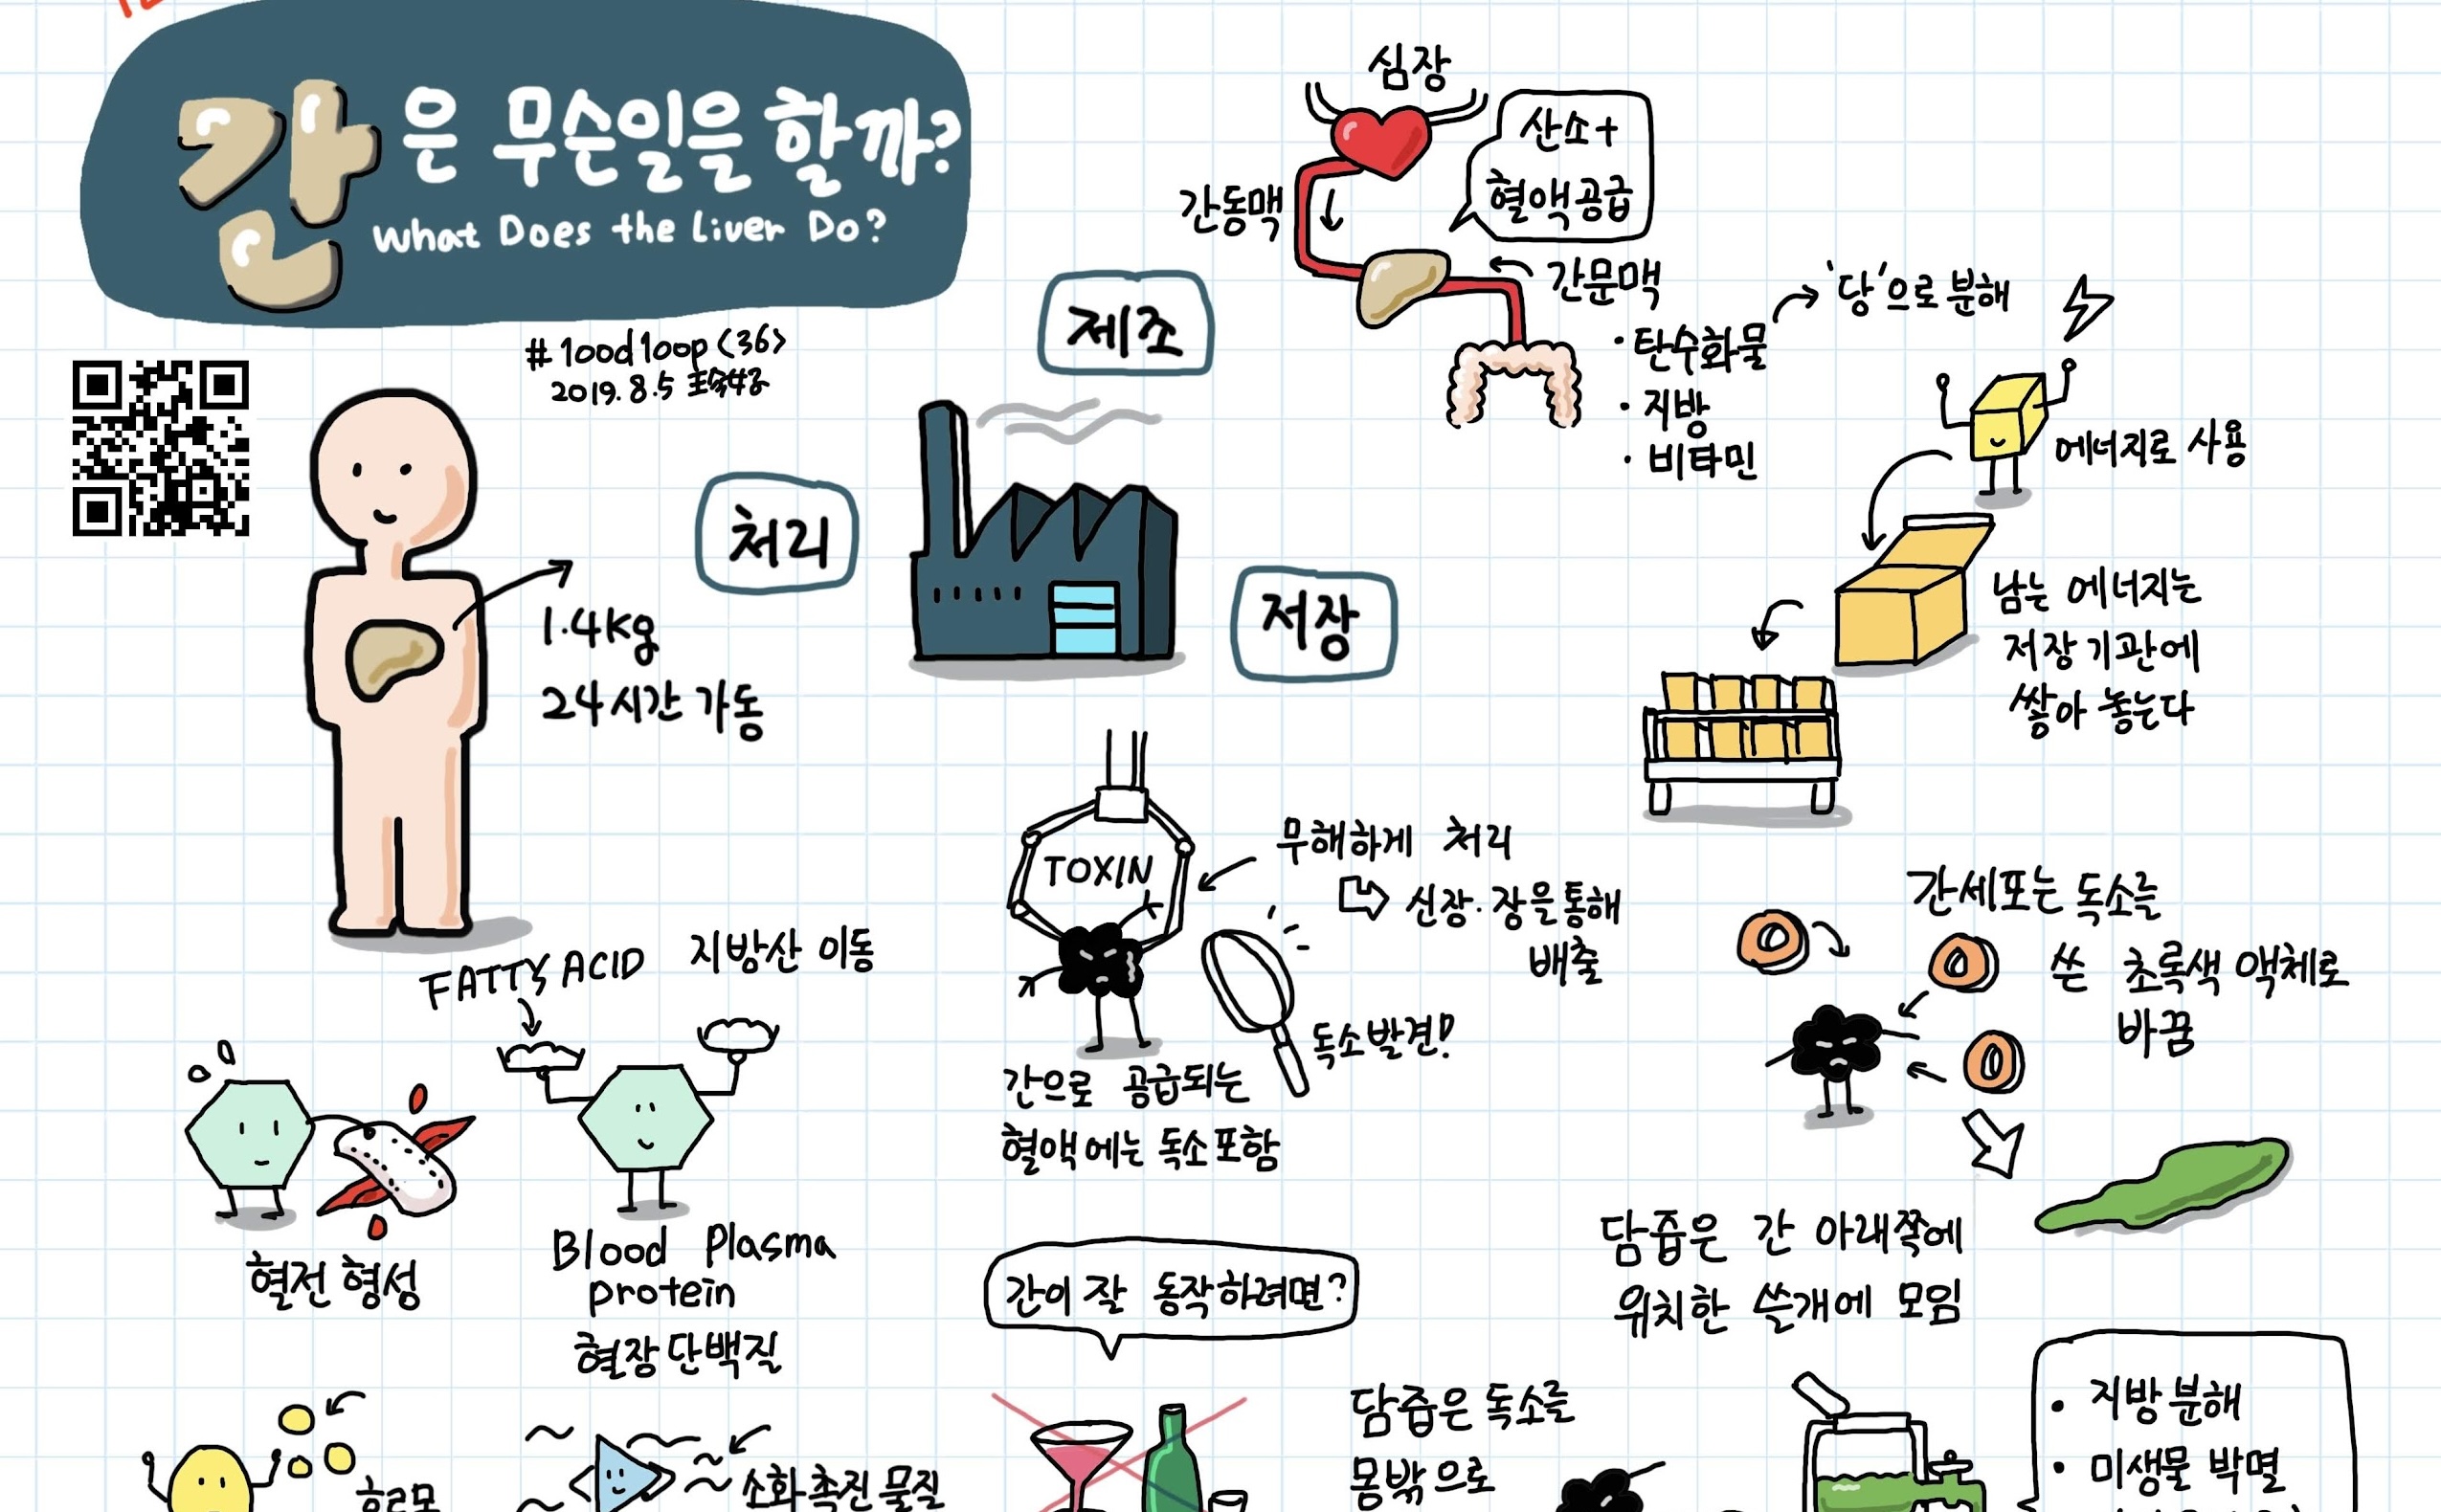 간은 무슨일을 할까?
What Does the Liver Do?
#100d100p <36>
2019. 8. 5
1.4kg
24시간 가동
제조
처리
저장
심장
산소+
혈액공급
간동맥
간문맥
· 탄수화물
· 지방
· 비타민
'당'으로 분해
에너지로 사용
남는 에너지는
저장 기관에
쌓아 놓는다
TOXIN
무해하게 처리
신장·장을 통해
배출
독소발견!
간으로 공급되는
혈액에는 독소포함
간세포는 독소를
쓴 초록색 액체로
바꿈
담즙은 간 아래쪽에
위치한 쓸개에 모임
FATTY ACID 지방산 이동
혈전 형성
Blood Plasma
protein
혈장 단백질
간이 잘 동작하려면?
담즙은 독소를
몸밖으로
• 지방 분해
• 미생물 박멸
소화 촉진 물질